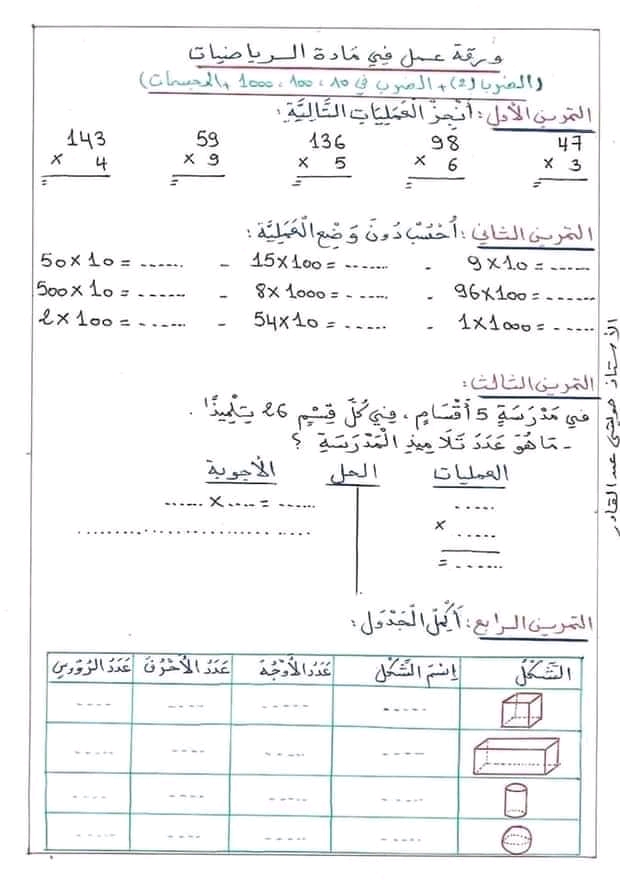 ورقة عمل في مادة الرياضيات
(الضرب (2) + الضرب في 10، 100، 1000 + المجسمات)
التمرين الأول: أَنْجِزْ الْعَمَلِيَاتِ التَّالِيَّةِ:
47 98 136 59 143
× 3 × 6 × 5 × 9 × 4
= = = = =
التمرين الثاني: أُحْسُبْ دُونَ وَضْعِ الْعَمَلِيَّة:
9×10=...... - 15×100=...... - 50×10=......
96×100=...... - 8×1000=...... - 500×10=......
1×1000=...... - 54×10=...... - 2×100=......
التمرين الثالث:
في مَدْرَسَةٍ 5 أَقْسَامٍ، فِي كُلِّ قِسْمٍ 26 تِلْمِيذًا.
- مَا هُوَ عَدَدَ تَلَامِيذِ الْمَدْرَسَةِ ؟
العمليات الحل الأجوبة
..... ...... × .... = ......
× .....
= ...... ..............................
التمرين الرابع: أَكْمِلْ الْجَدْوَل:
الشَّكْلُ إِسْمَ الشَّكْل عَدَدُ الأَوْجُهُ عَدَدُ الأَحْرُف عَدَدُ الرُّؤوسِ
---- ---- ---- ----
---- ---- ---- ----
---- ---- ---- ----
---- ---- ---- ----
الأستاذ عبد القادر